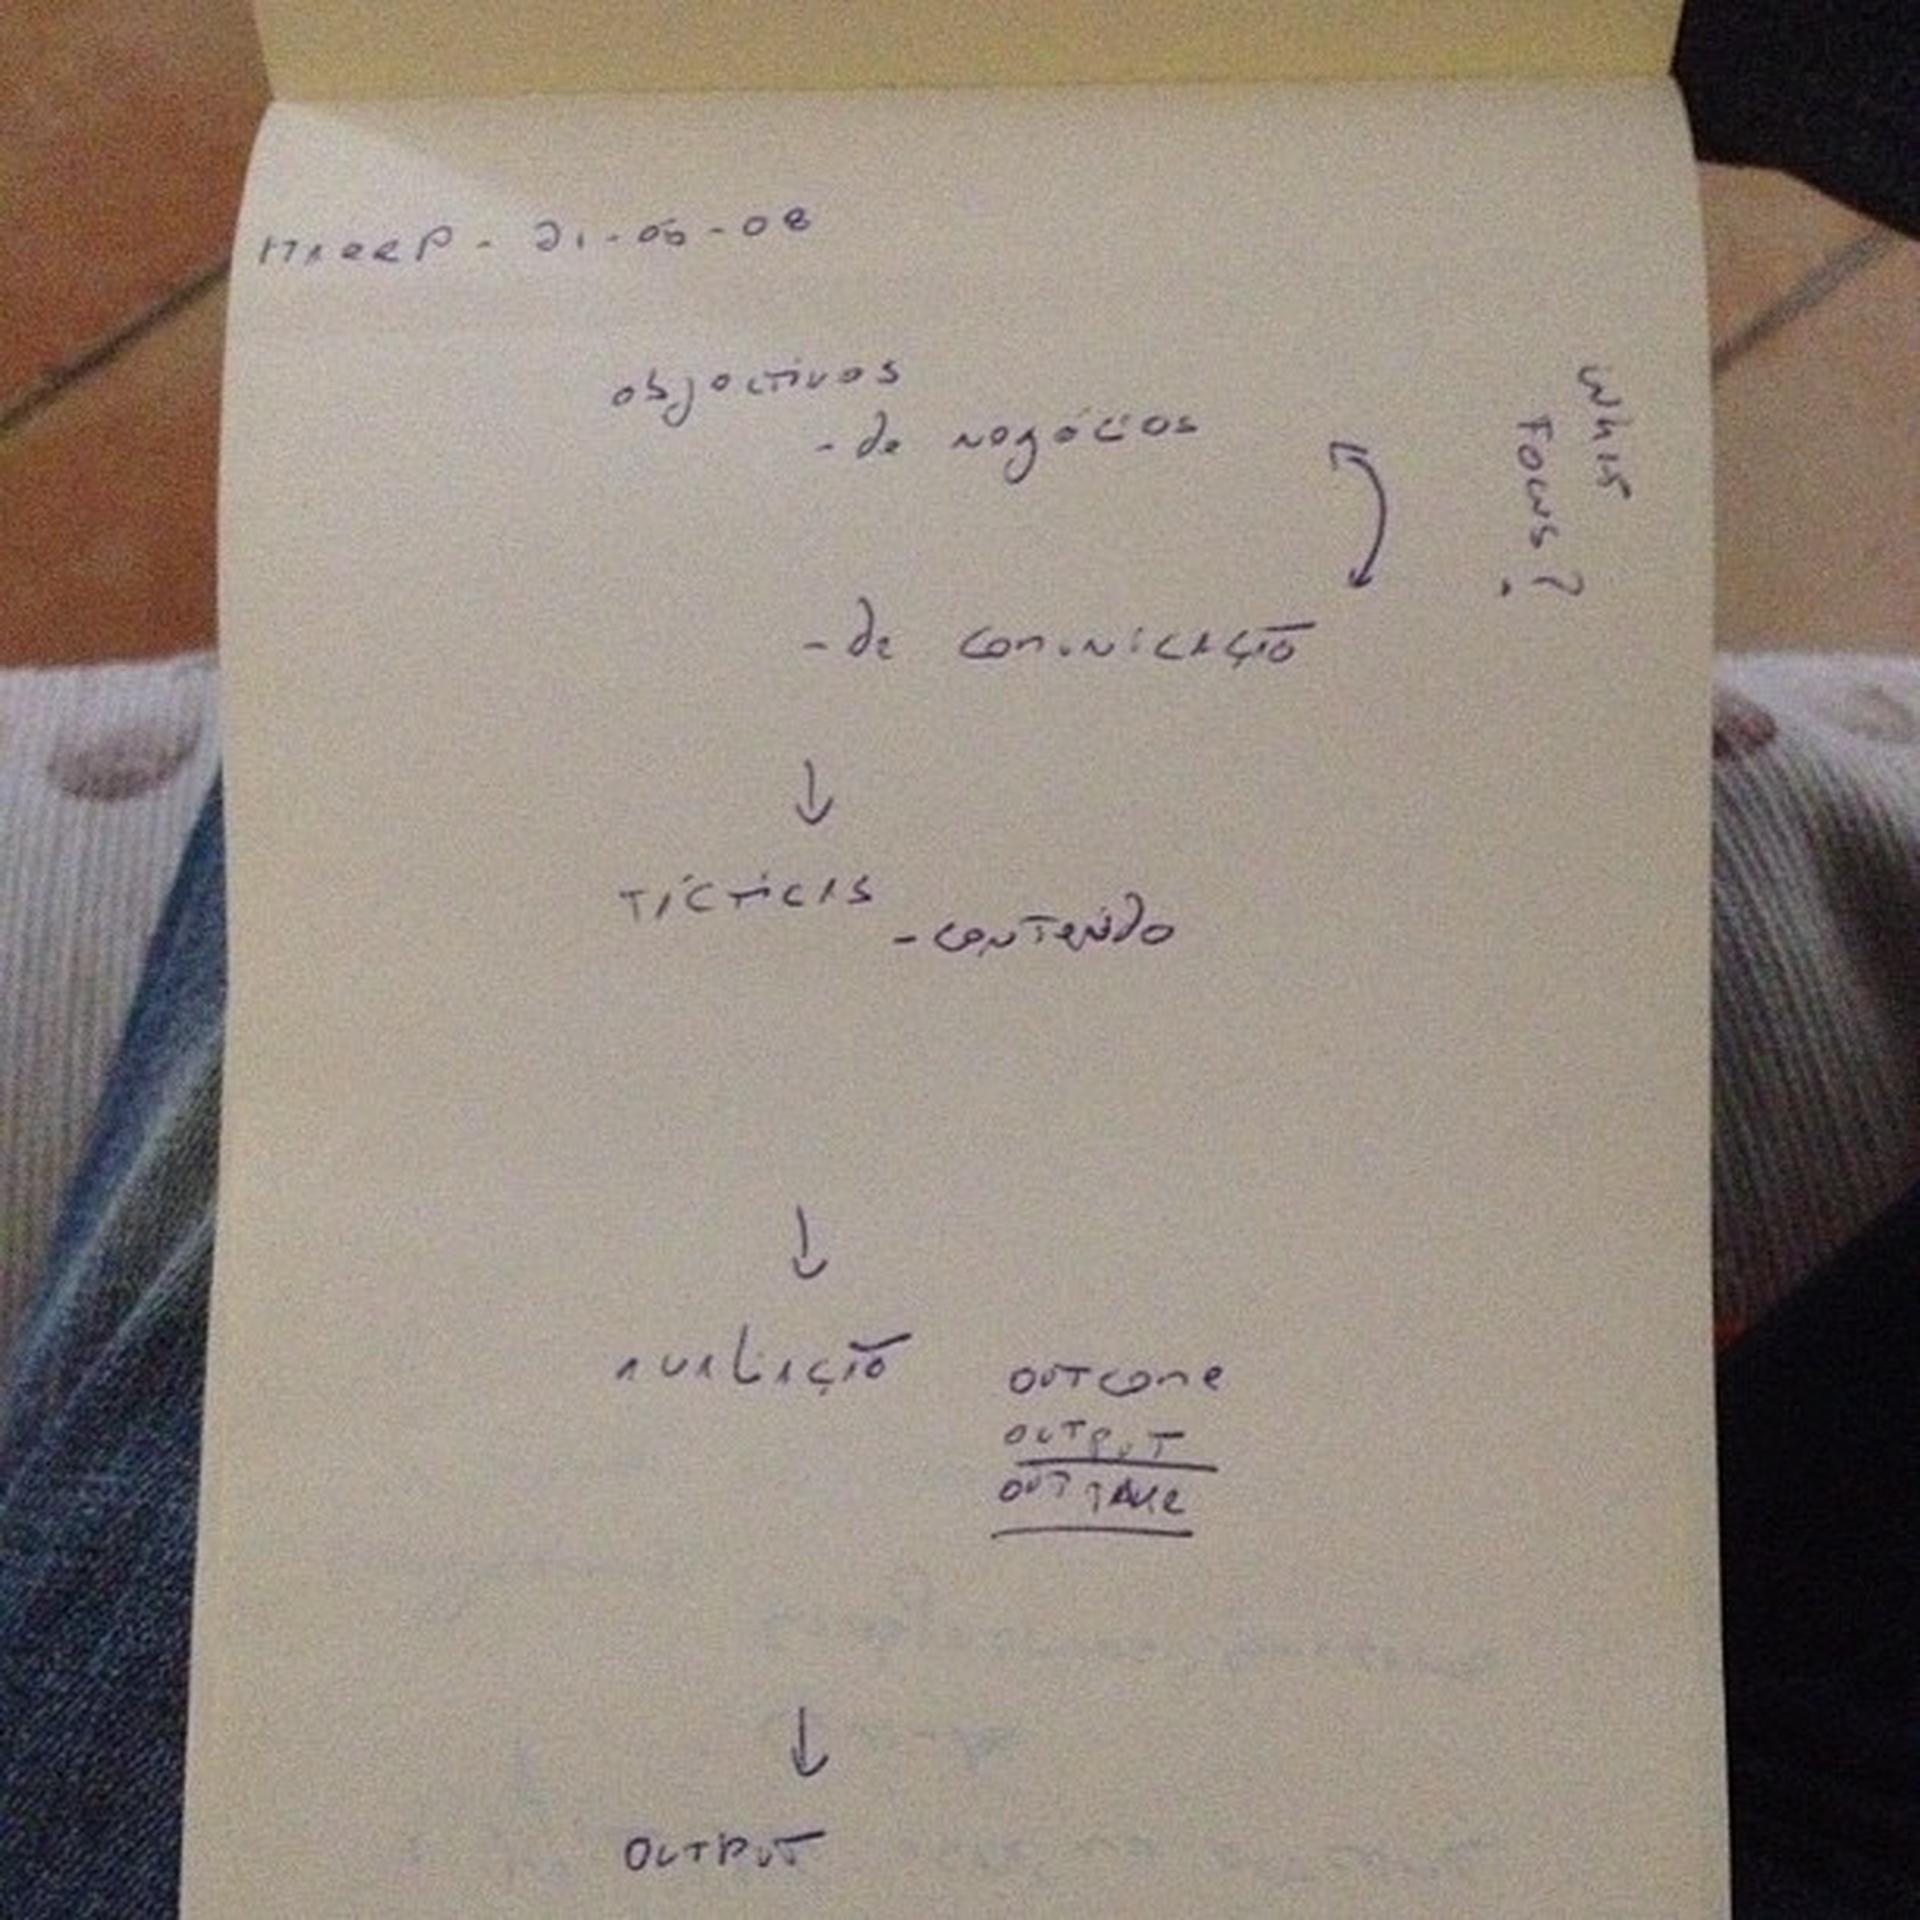 objectivos
- de negócios
- de comunicação
Focus?
↓
Tácticas
- conteúdo
↓
Avaliação
outcome
output
outtake
↓
output